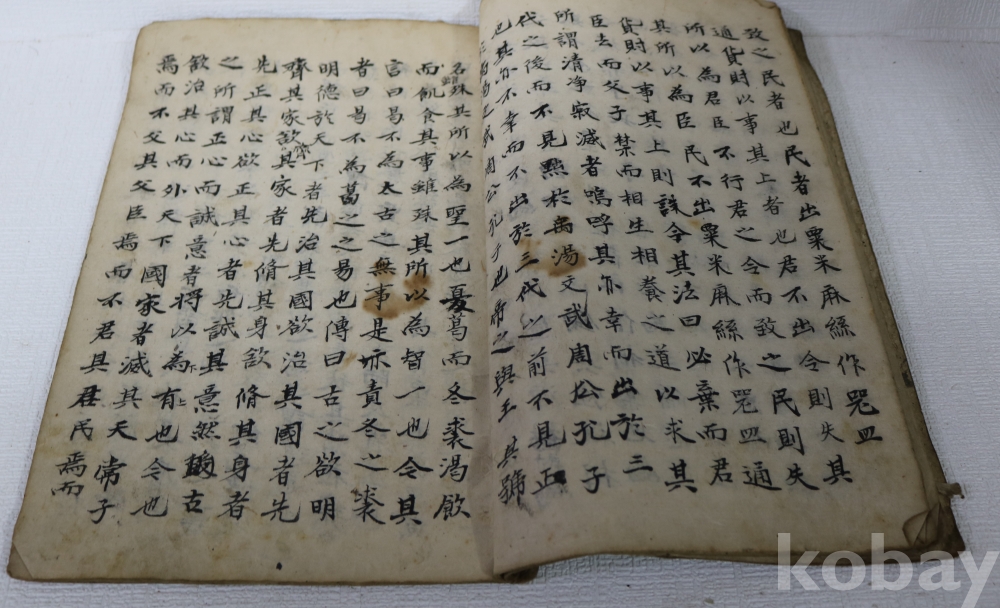 致之民者也民者出粟米麻絲作器皿
通貨財以事其上者也君不出令則失其
所以為君臣不行君之令而致之民則失
其所以為臣民不出粟米麻絲作器皿通
貨財以事其上則誅今其法曰必棄而君
臣去而父子禁而相生相養之道以求其
所謂清净寂滅者嗚呼其亦幸而出於三
代之後而不見黜於禹湯文武周公孔子
也其亦不幸而不出於三代之前不見正
周公孔子也帝之與王其號
名雖殊其所以為聖一也夏葛而冬裘渴飲
而飢食其事雖殊其所以為智一也今其
言曰曷不為太古之無事是亦責冬之裘
者曰曷不為葛之之易也傳曰古之欲明
明德於天下者先治其國欲治其國者先
齊其家欲齊其家者先脩其身欲脩其身者
先正其心欲正其心者先誠其意然則古
之所謂正心而誠意者將以有為也今也
欲治其心而外天下國家者滅其天常子
焉而不父其父臣焉而不君其君民焉而
kobay